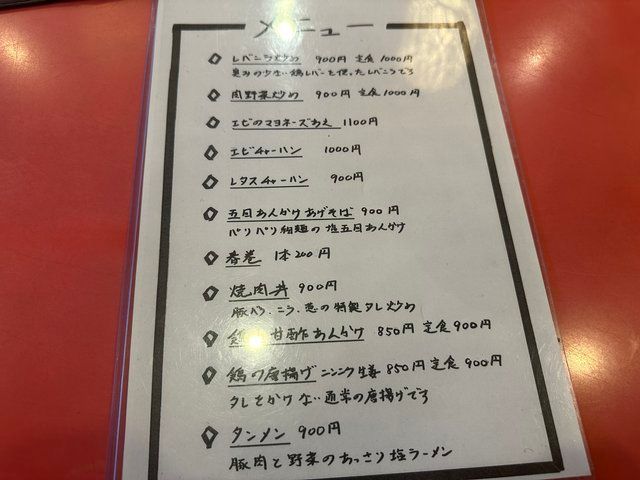 メニュー
レバニラ炒め 900円 定食1000円
臭みの少ない鶏レバーを使ったレバニラです
肉野菜炒め 900円 定食1000円
エビのマヨネーズあえ 1100円
エビチャーハン 1000円
レタスチャーハン 900円
五目あんかけあげそば 900円
パリパリ細麺の塩五目あんかけ
春巻 1本200円
焼肉丼 900円
豚バラ、ニラ、葱の特製タレ炒め
甘酢あんかけ 850円 定食900円
鶏の唐揚げ ニンニク生姜 850円 定食900円
タレをかけない通常の唐揚げです
タンメン 900円
豚肉と野菜のあっさり塩ラーメン